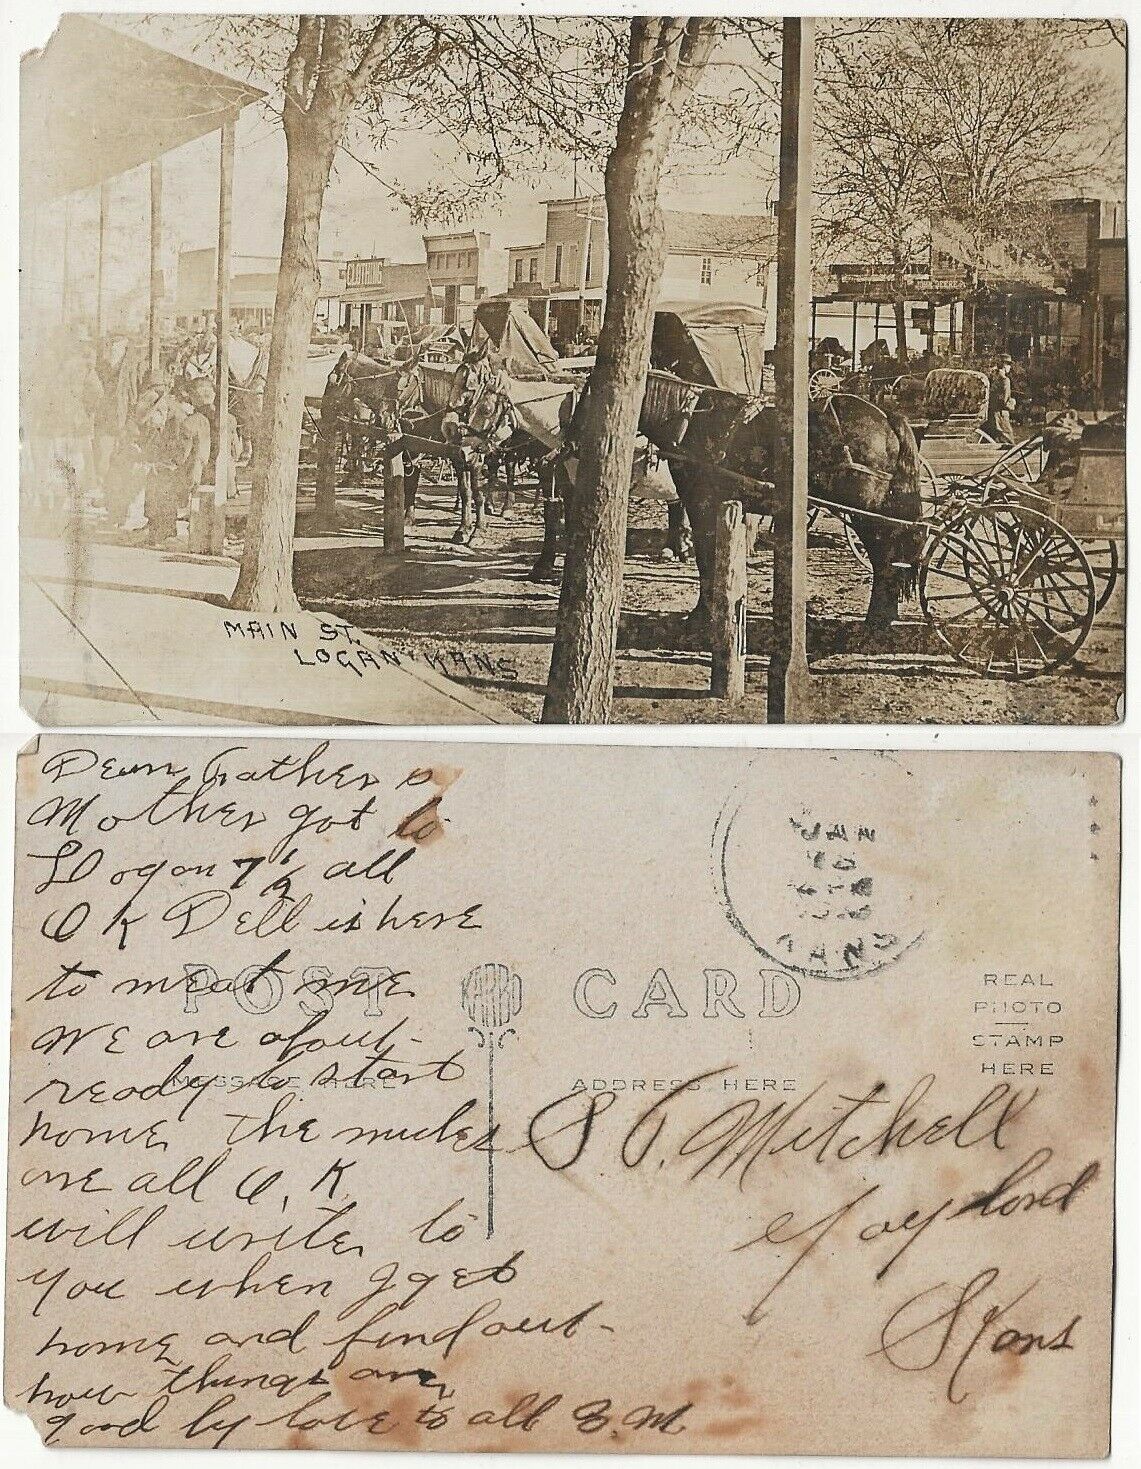 CLOTHING
MAIN ST.
LOGAN KANS
Dear Father &
Mother got to
Logan 7 1/2 all
O K Dell is here
to meat me
We are about
ready to start
home the mules
are all O. K.
will write to
you when I get
home and find out
how things are
good by love to all
POST CARD
KANS
REAL
PHOTO
STAMP
HERE
MESSAGE HERE
ADDRESS HERE
Mitchell
Gaylord
Kans